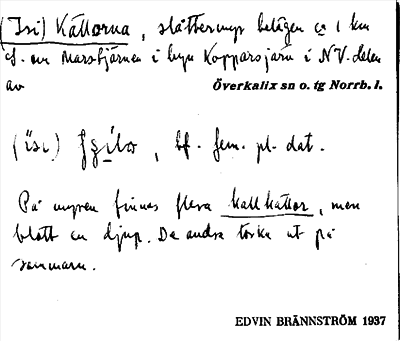 (Isi) Källorna, slåttermyr belägen ca 1 km
of. om Marsktjärnen i byn Kopparsjärn i NV. delen
av Överkalix sn o. tg Norrb. l.
(isi) , bf. fem. pl. dat.
På myren finnas flera kallkällor, men
blott en djup. De andra torka ut på
sommarn.
EDVIN BRÄNNSTRÖM 1937